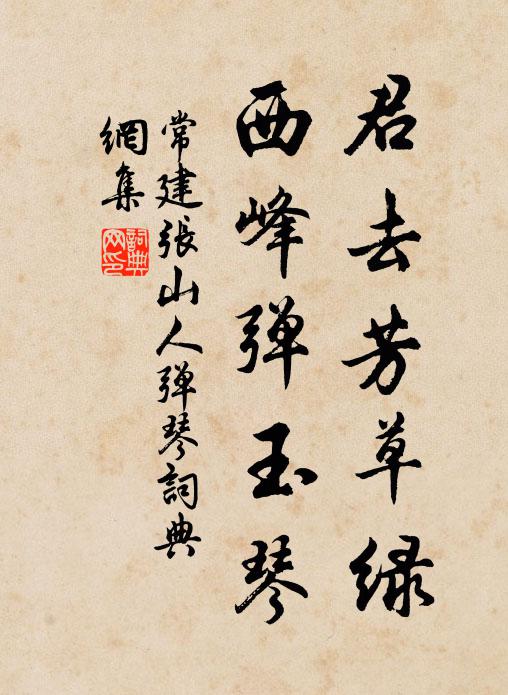 君去芳草绿
西峰弹玉琴
常建張山人弹琴詞典
網集
詞典网印